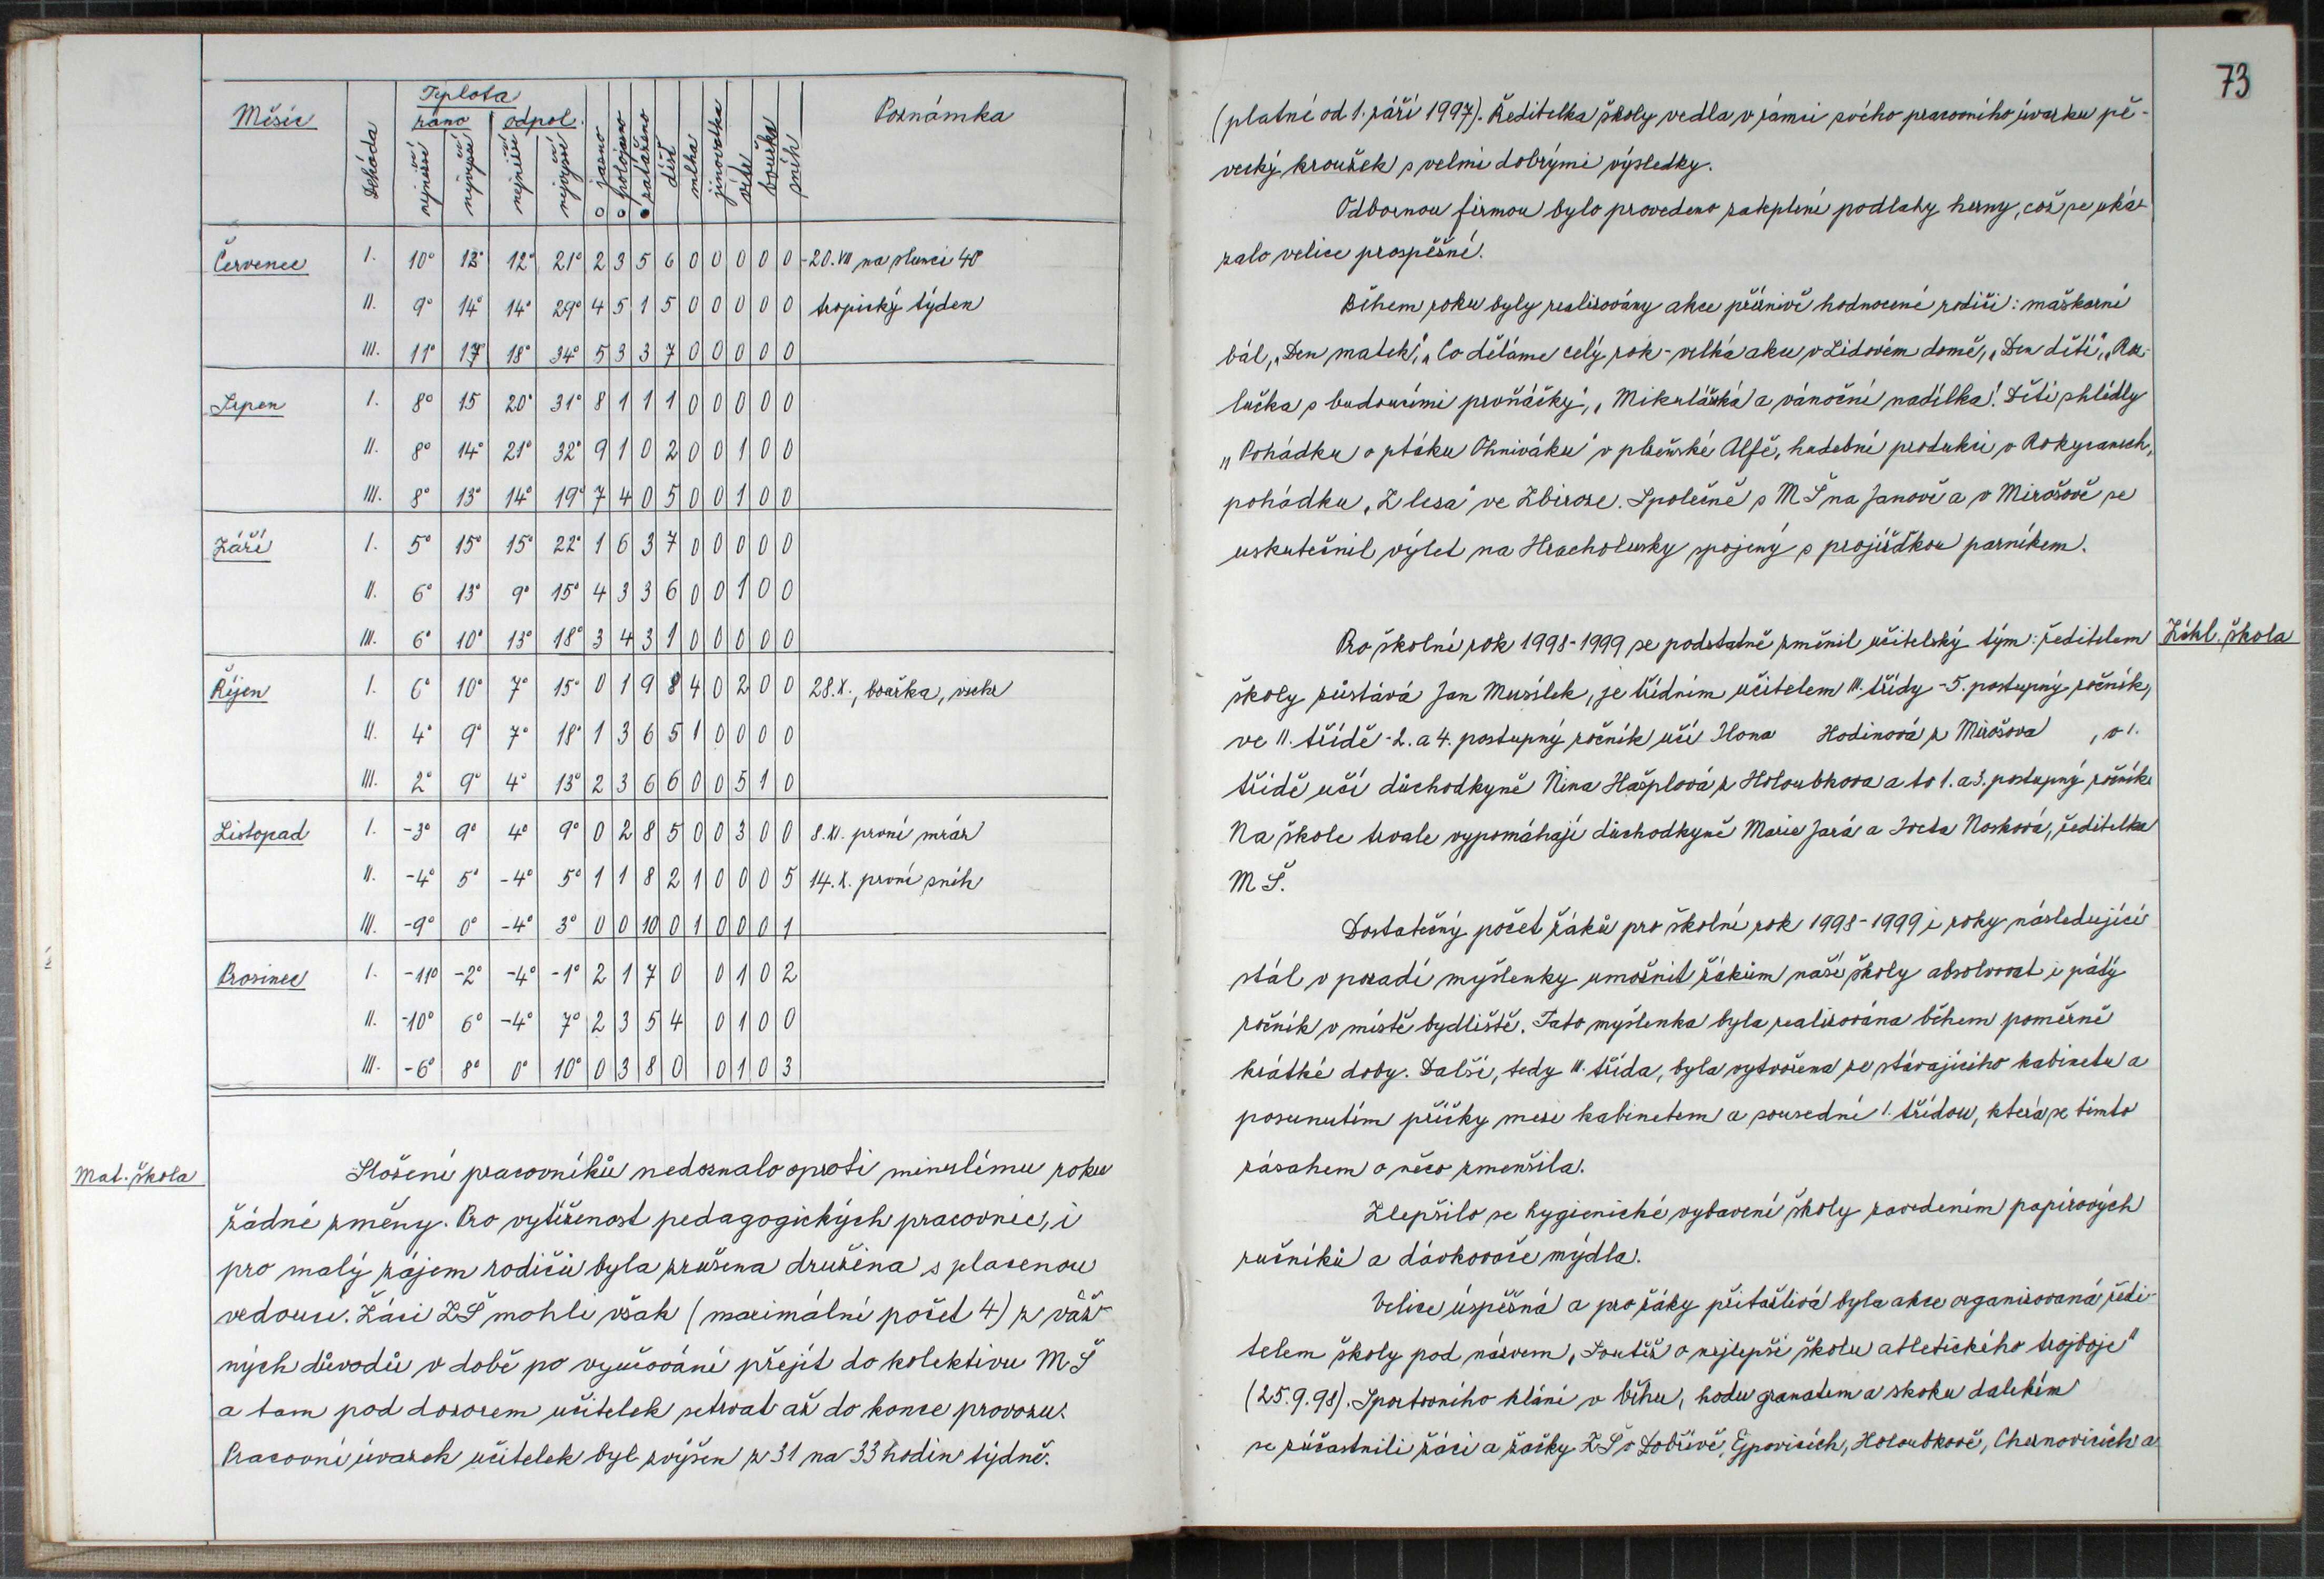 Měsíc Dekáda Teplota ráno odpol. nejnižší nejvyšší nejnižší nejvyšší jasno polojasno zataženo déšť mlha jinovatka vítr bouřka sníh Poznámka
Červenec I. 10° 13° 12° 21° 2 3 5 6 0 0 0 0 0 -20.VII na slunci 40°
II. 9° 14° 14° 29° 4 5 1 5 0 0 0 0 0 tropický týden
III. 11° 17° 18° 34° 5 3 3 7 0 0 0 0 0
Srpen I. 8° 15 20° 31° 8 1 1 1 0 0 0 0 0
II. 8° 14° 21° 32° 9 1 0 2 0 0 1 0 0
III. 8° 13° 14° 19° 7 4 0 5 0 0 1 0 0
Září I. 5° 15° 15° 22° 1 6 3 7 0 0 0 0 0
II. 6° 13° 9° 15° 4 3 3 6 0 0 1 0 0
III. 6° 10° 13° 18° 3 4 3 1 0 0 0 0 0
Říjen I. 6° 10° 7° 15° 0 1 9 8 4 0 2 0 0 28.X., bouřka,
II. 4° 9° 7° 18° 1 3 6 5 1 0 0 0 0
III. 2° 9° 4° 13° 2 3 6 6 0 0 5 1 0
Listopad I. -3° 9° 4° 9° 0 2 8 5 0 0 3 0 0 8.XI. první mráz
II. -4° 5° -4° 5° 1 1 8 2 1 0 0 0 5 14.X. první sníh
III. -9° 0° -4° 3° 0 0 10 0 1 0 0 0 1
Prosinec I. -11° -2° -4° -1° 2 1 7 0 0 1 0 2
II. -10° 6° -4° 7° 2 3 5 4 0 1 0 0
III. -6° 8° 0° 10° 0 3 8 0 0 1 0 3
Mat. škola
Složení pracovníků nedoznalo oproti minulému roku
žádné změny. Pro vytíženost pedagogických pracovnic, i
pro malý zájem rodičů byla zrušena družina s placenou
vedoucí. Žáci ZŠ mohli však (maximální počet 4) z váž-
ných důvodů v době po vyučování přejít do kolektivu MŠ
a tam pod dozorem učitelek setrvat až do konce provozu.
Pracovní úvazek učitelek byl zvýšen z 31 na 33 hodin týdně.
73
(platné od 1. září 1997). Ředitelka školy vedla v rámci svého pracovního úvazku pě-
vecký kroužek s velmi dobrými výsledky.
Odbornou firmou bylo provedeno zateplení podlahy herny, což se uká-
zalo velice prospěšné.
Během roku byly realizovány akce příznivě hodnocené rodiči: maškarní
bál, „Den matek", „Co děláme celý rok - velká akce v Lidovém domě, „Den dětí", „Roz-
lučka s budoucími prvňáčky", „Mikulášská a vánoční nadílka". Děti shlédly
„Pohádku o ptáku Ohniváku" v plzeňské Alfě, hudební produkci v Rokycanech,
pohádku „Z lesa" ve Zbiroze. Společně s MŠ na Janově a v Mirošově se
uskutečnil výlet na Hracholusky spojený s projížďkou parníkem.
Zákl. škola
Pro školní rok 1998-1999 se podstatně změnil učitelský tým: ředitelem
školy zůstává Jan Musílek, je třídním učitelem III. třídy - 5. postupný ročník,
ve II. třídě - 2. a 4. postupný ročník učí Ilona Hodinová z Mirošova , v I.
třídě učí důchodkyně Nina Hašplová z Holoubkova a to 1. a 3. postupný ročník.
Na škole trvale vypomáhají důchodkyně Marie Jará a Iveta Nosková, ředitelka
MŠ.
Dostatečný počet žáků pro školní rok 1998-1999 i roky následující
stál v pozadí myšlenky umožnit žákům naší školy absolvovat i pátý
ročník v místě bydliště. Tato myšlenka byla realizována během poměrně
krátké doby. Další, tedy III. třída, byla vytvořena ze stávajícího kabinetu a
posunutím příčky mezi kabinetem a sousední I. třídou, která se tímto
zásahem o něco zmenšila.
Zlepšilo se hygienické vybavení školy zavedením papírových
ručníků a dávkovače mýdla.
Velice úspěšná a pro žáky přitažlivá byla akce organizovaná ředi-
telem školy pod názvem „Soutěž o nejlepší školu atletického trojboje"
(25.9.98). Sportovního klání v běhu, hodu granátem a skoku dalekém
se zúčastnili žáci a žačky ZŠ v Dobřívě, Ejpovicích, Holoubkově, Chrnovicích a